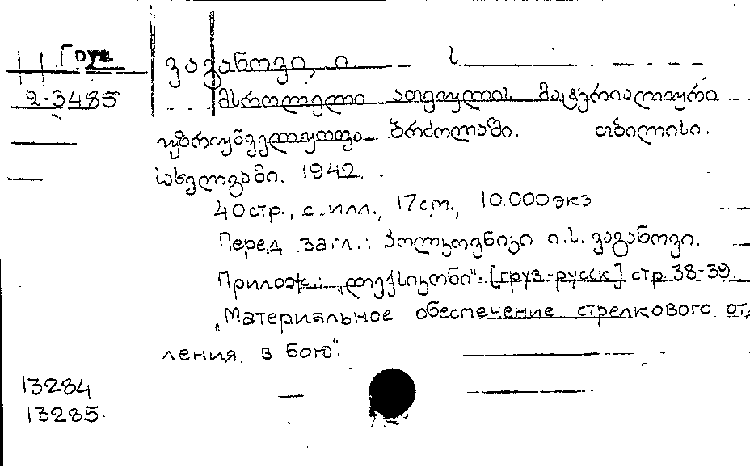 Груз ვაგანოვი, ი. ს.
2-3485 მსროლელი ათეულის მატერიალური
უზრუნველყოფა ბრძოლაში. თბილისი.
სახელგამი. 1942.
40 стр., с. илл., 17 см., 10.000 экз
Перед загл.: პოლკოვნიკი ი.ს. ვაგანოვი.
Прилож.: „ლექსიკონი". [груз.-русск] стр. 38-39.
„Материальное обеспечение стрелкового от
ления в бою".
13284
13285.